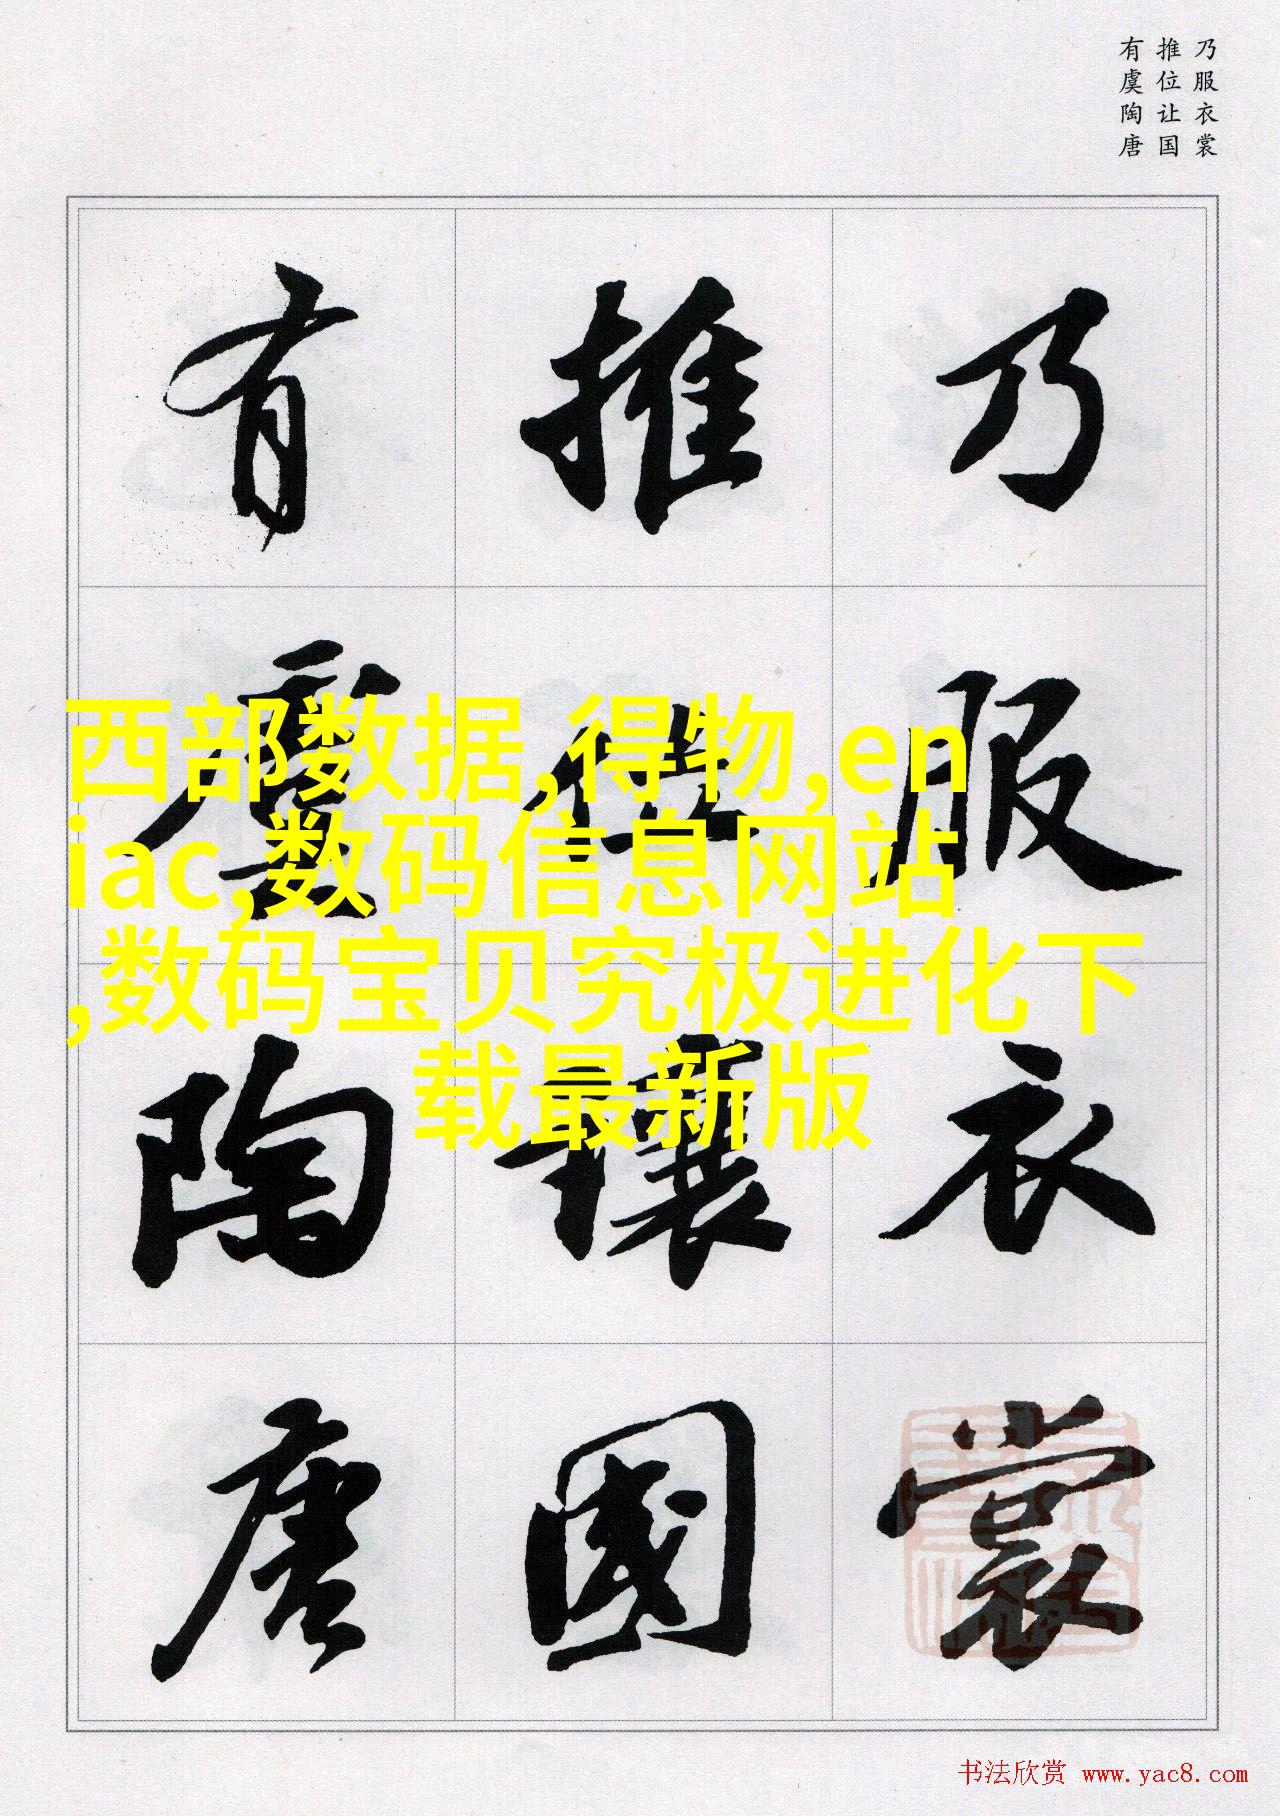 乃服衣裳
推位让国
有虞陶唐
乃服衣裳
推位讓國
有虞陶唐
西部数据,得物,en
iac,数码信息网站
,数码宝贝究极进化下
载最新版
书法欣赏 www.yac8.com